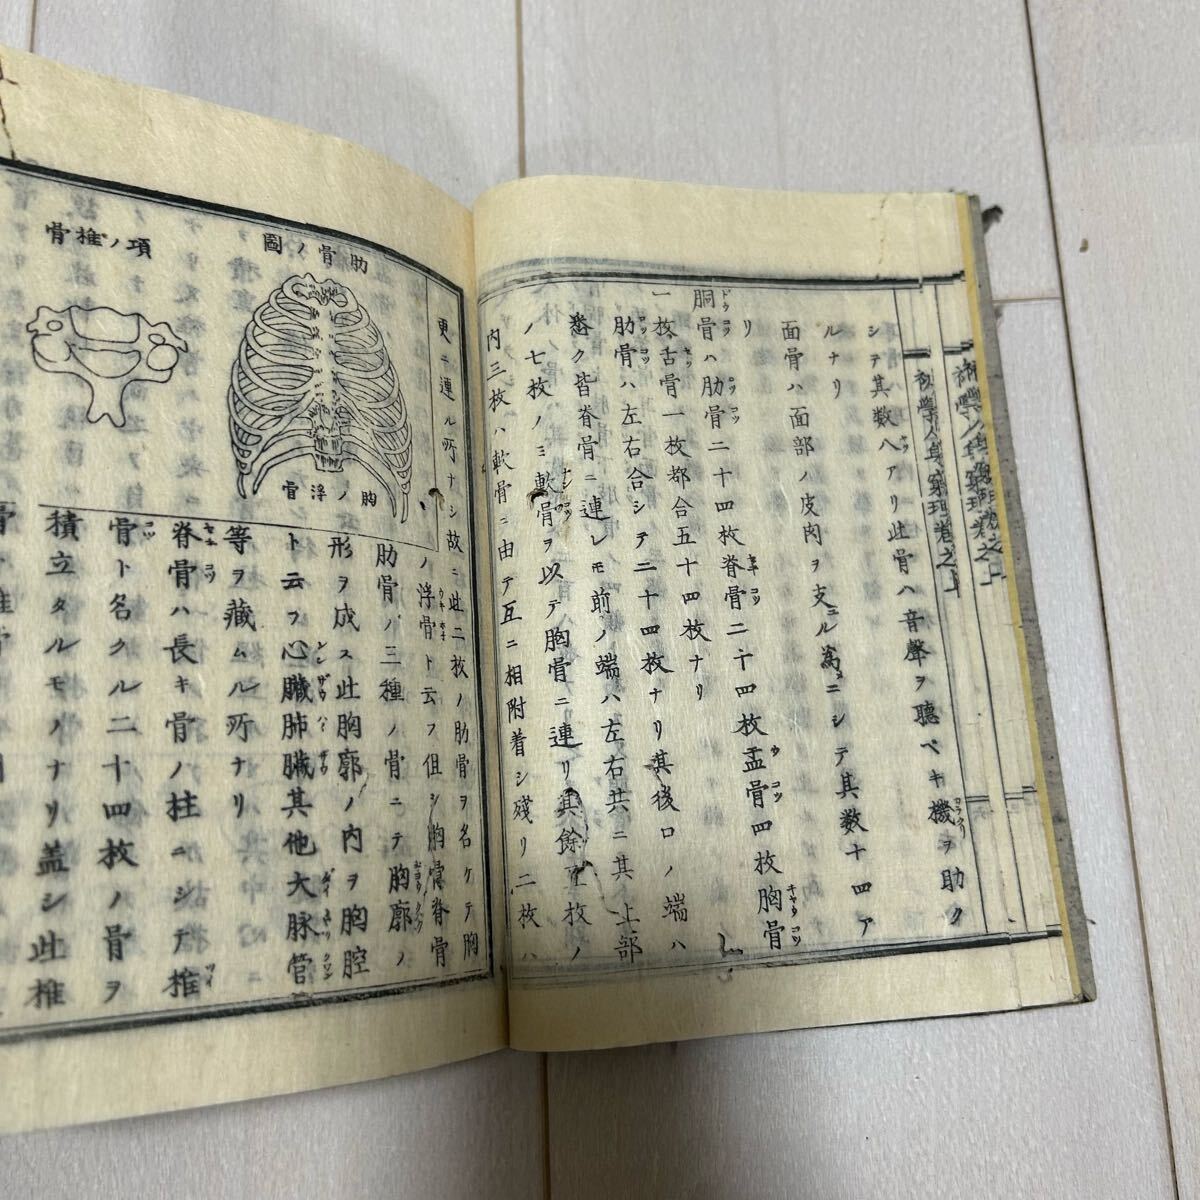 初學人身窮理卷之上
シテ其数八アリ此骨ハ音聲ヲ聽ベキ機ヲ助ク
ルナリ
面骨ハ面部ノ皮肉ヲ支ユル爲ニシテ其数十四ア
リ
胴骨ハ肋骨二十四枚脊骨二十四枚盂骨四枚胸骨
一枚舌骨一枚都合五十四枚ナリ
肋骨ハ左右合シテ二十四枚ナリ其後ロノ端ハ
悉ク皆脊骨ニ連レモ前ノ端ハ左右共ニ其上部
ノ七枚ノミ軟骨ヲ以テ胸骨ニ連リ其餘五枚ノ
内三枚ハ軟骨ニ由テ互ニ相附着シ殘リ二枚ハ
更ニ連ル所ナシ故ニ此二枚ノ肋骨ヲ名ケテ胸
ノ浮骨ト云フ但シ胸骨脊骨
肋骨ノ三種ノ骨ニテ胸廓ノ
形ヲ成ス此胸廓ノ内ヲ胸腔
ト云フ心臓肺臓其他大脉管
等ヲ藏ムル所ナリ
脊骨ハ長キ骨ノ柱ニシテ椎
骨ト名クル二十四枚ノ骨ヲ
積立タルモノナリ盖シ此椎
肋骨ノ圖
胸ノ浮骨
項ノ椎骨